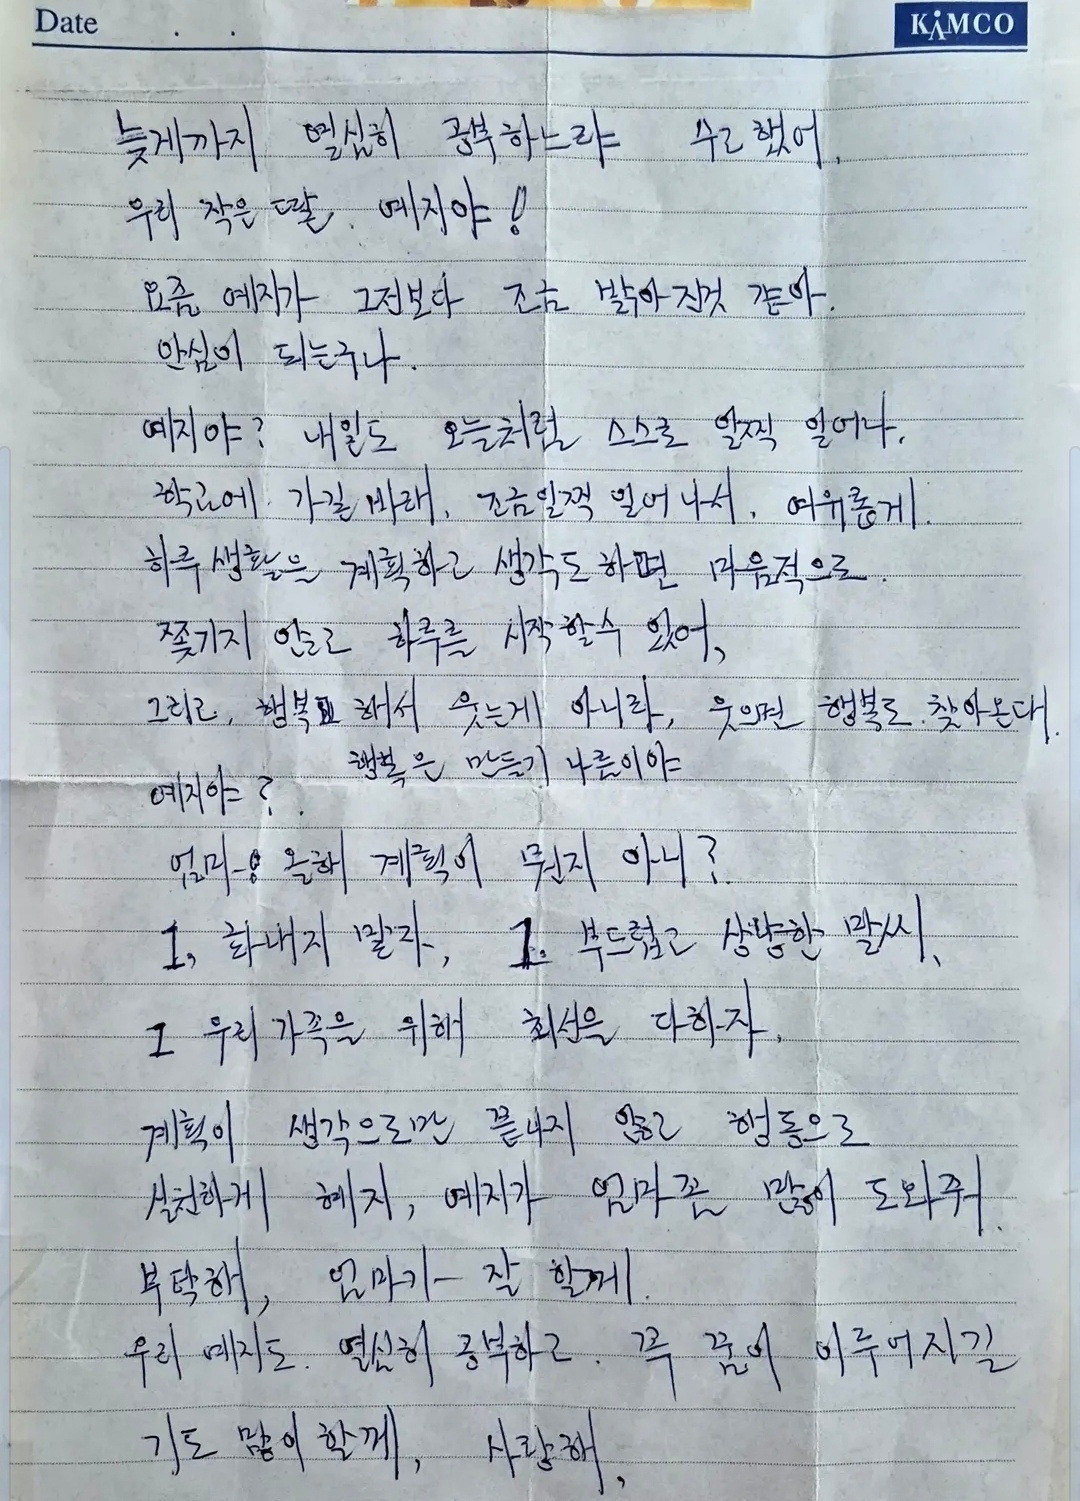 Date . .
KAMCO
늦게까지 열심히 공부하느라 수고했어,
우리 작은 딸. 예지야!
요즘 예지가 그전보다 조금 밝아진것 같아.
안심이 되는구나.
예지야? 내일도 오늘처럼 스스로 일찍 일어나.
학교에 가길 바래, 조금일찍 일어나서, 여유롭게.
하루 생활을 계획하고 생각도하면 마음적으로.
쫓기지 안고 하루를 시작할수 있어,
그리고, 행복 해서 웃는게 아니라, 웃으면 행복도 찾아온다.
행복은 만들기 나름이야
예지야?
엄마 올해 계획이 뭔지 아니?
1, 화내지 말자, 1. 부드럽고 상량한 말씨,
1 우리가족을 위해 최선을 다하자,
계획이 생각으로만 끝나지 않고 행동으로
실천하게 혜지, 예지가 엄마좀 많이 도와줘.
부탁해, 엄마가 잘 할게.
우리 예지도. 열심히 공부하고. 꼭 꿈이 이루어지길
기도 많이할께, 사랑해,